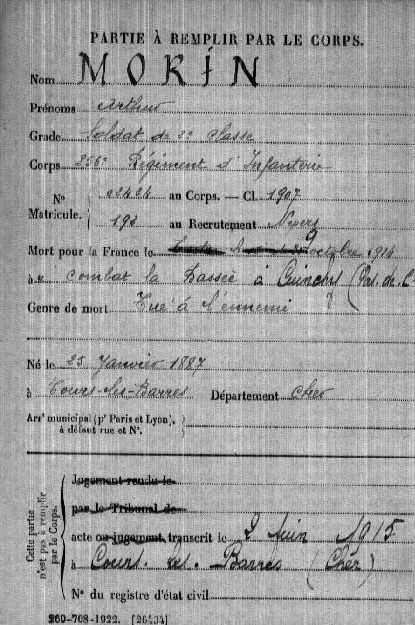 PARTIE À REMPLIR PAR LE CORPS.
Nom MORIN
Prénoms Arthur
Grade Soldat de 2e classe
Corps 256e Régiment d'Infanterie
N° 02424 au Corps. — Cl. 1907
Matricule. 193 au Recrutement Nevers
Mort pour la France le 9 octobre 1914
à combat la Bassée à Cuinchy (Pas-de-C
Genre de mort Tué à l'ennemi
Né le 25 Janvier 1887
à Cours-les-Barres Département Cher
Arrt municipal (pr Paris et Lyon),
à défaut rue et N°.
Cette partie
n'est pas à remplir
par le Corps.
Jugement rendu le
par le Tribunal de
acte ou jugement transcrit le 2 Juin 1915
à Cours-les-Barres (Cher)
N° du registre d'état civil
269-708-1922. [26434]